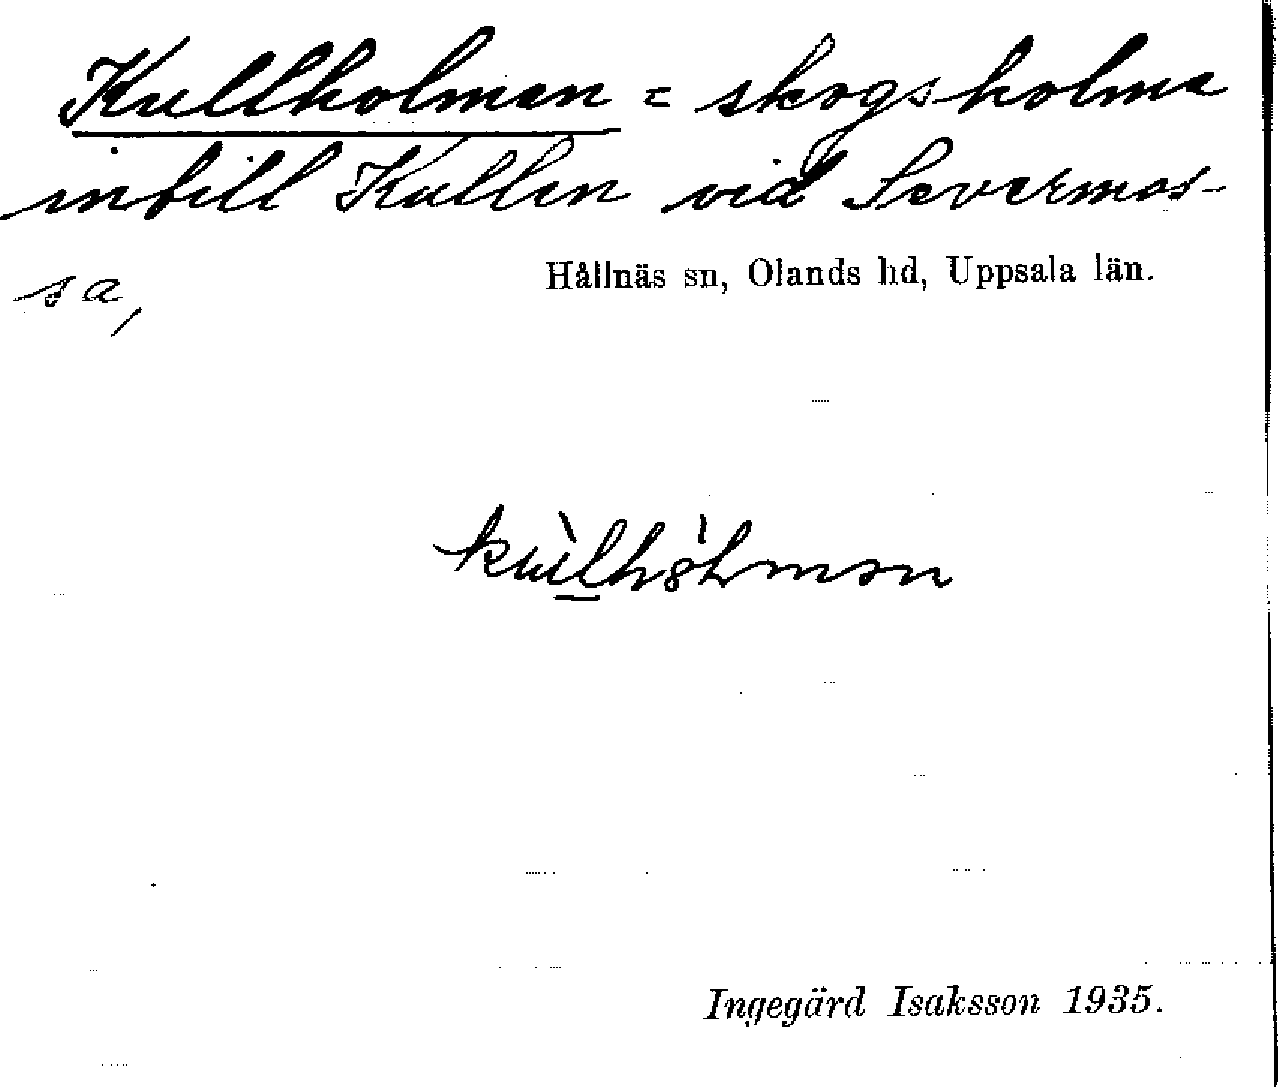 Kullholman = skogsholma
intill Kullen vid Severmos-
sa,
Hållnäs sn, Olands hd, Uppsala län.
Ingegärd Isaksson 1935.